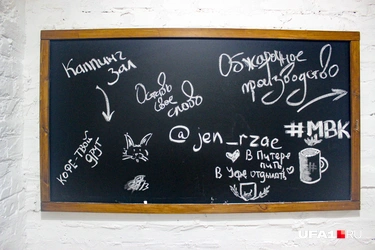 Каппинг
зал
Обжарочное
производство
Оставь
свое
слово
@jen_rzae
#МВК
КОФЕ-ТВОЙ
ДРУГ
В Питере
пить
В Уфе отдыхать
UFA1.RU